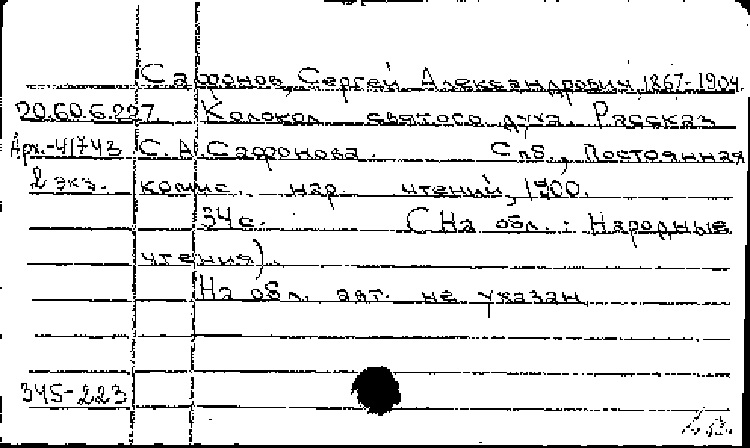 Сафонов, Сергей Александрович, 1867-1904.
20.60.6.227. Колокол святого духа. Рассказ
Арх.-41743 С. А. Сафонова. Спб., Постоянная
2 экз. комис. нар. чтений, 1900.
34 с. (На обл.: Народные
чтения).
На обл. авт. не указан
345-223